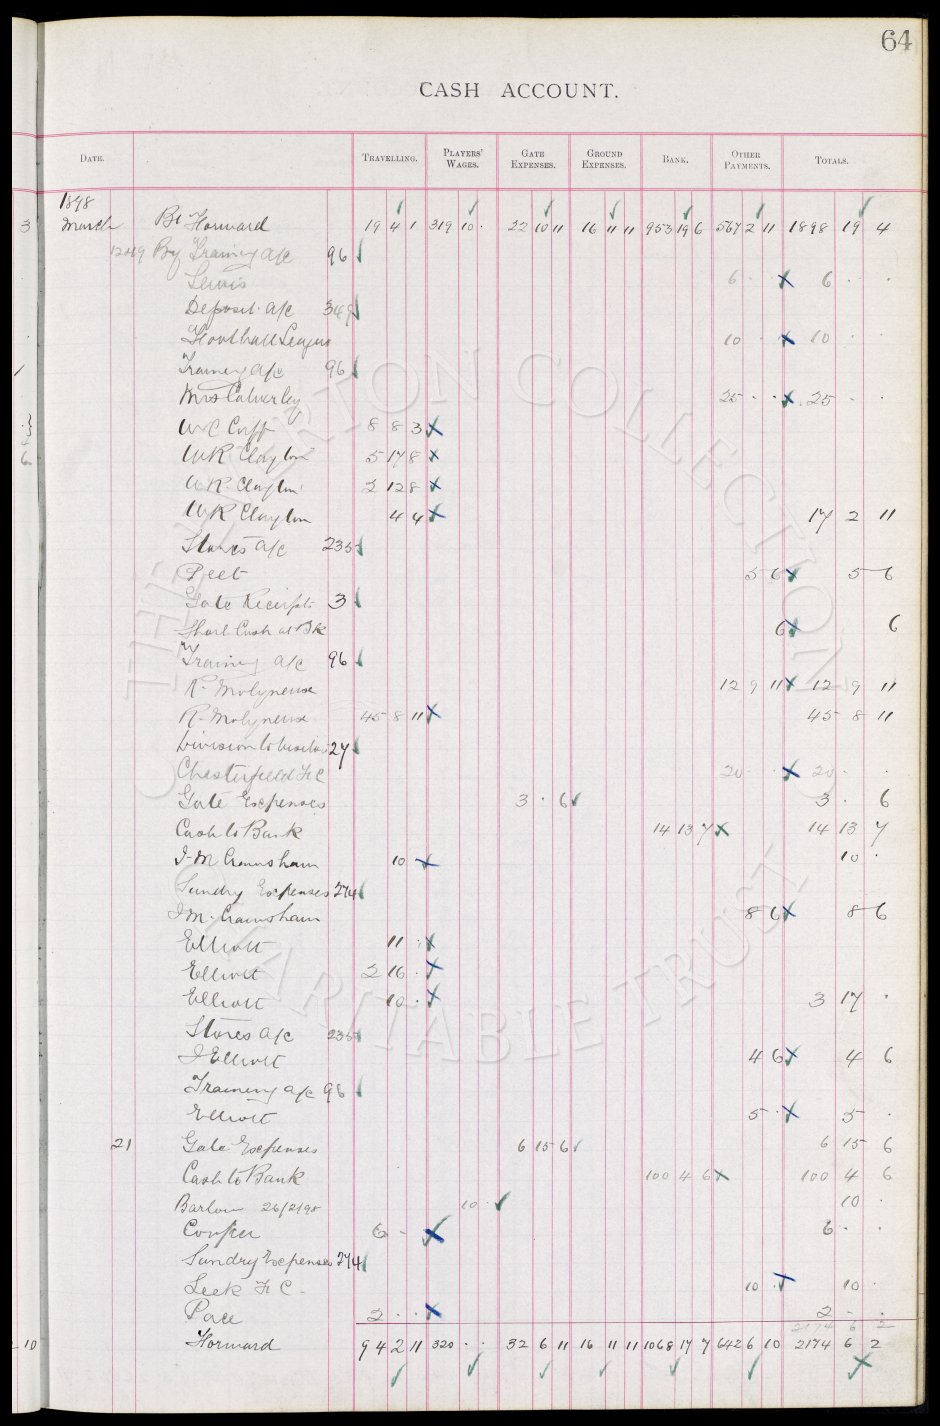 64
CASH ACCOUNT.
DATE. TRAVELLING. PLAYERS' WAGES. GATE EXPENSES. GROUND EXPENSES. BANK. OTHER PAYMENTS. TOTALS.
1898
3 March By Forward 19 4 1 319 10 . 22 10 11 16 11 11 953 19 6 567 2 11 1898 19 4
By Training a/c 96
Lewis 6 . . 6 . .
Deposit a/c 349
Football League 10 . . 10 . .
Training a/c 96
Mrs Calverley 25 . . 25 . .
W C Cuff 8 8 3
W R Clayton 5 17 8
W R Clayton 2 12 8
W R Clayton 4 4 17 2 11
Stores a/c 235
Peet 5 6 5 6
Gate Receipts 3
Short Cash at Bk 6 6
Training a/c 96
R. Molyneux 12 9 11 12 9 11
R. Molyneux 45 8 11 45 8 11
Division to Visitors 27
Chesterfield F C 20 . . 20 . .
Gate Expenses 3 . 6 3 . 6
Cash to Bank 14 13 7 14 13 7
J. M. Cramsham 10 . 10 .
Sundry Expenses 274
J M. Cramsham 8 6 8 6
Elliott 11 .
Elliott 2 16 .
Elliott 10 . 3 17 .
Stores a/c 235
J Elliott 4 6 4 6
Training a/c 96
Elliott 5 . 5 .
21 Gate Expenses 6 15 6 6 15 6
Cash to Bank 100 4 6 100 4 6
Barlow 26/2/98 10 . 10 .
Cooper 6 - 6 . .
Sundry Expenses 274
Leek F C - 10 . 10 .
Pace 2 . . 2 - .
2174 6 2
10 Forward 94 2 11 320 . . 32 6 11 16 11 11 1068 17 7 642 6 10 2174 6 2
THE EVERTON COLLECTION
CHARITABLE TRUST